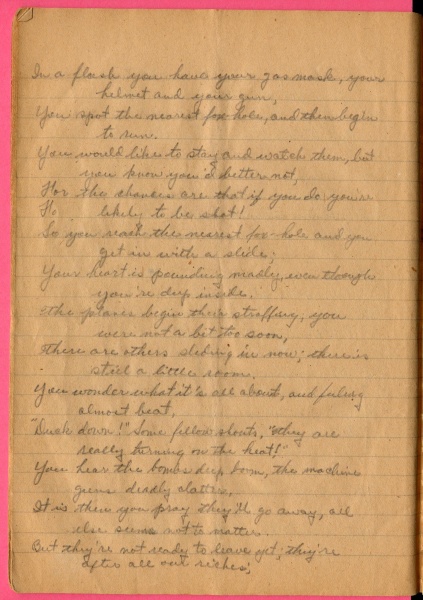 In a flash you have your gas mask, your
helmet and your gun,
You spot the nearest fox hole, and then begin
to run.
You would like to stay and watch them, but
you know you'd better not,
For the chances are that if you do you're
likely to be shot!
So you reach the nearest fox-hole and you
get in with a slide;
Your heart is pounding madly, even though
you're deep inside.
The planes begin their straffing, you
were not a bit too soon,
There are others sliding in now; there is
still a little room.
You wonder what it's all about, and feeling
almost beat,
"Duck down!" Some fellow shouts, "They are
really turning on the heat!"
You hear the bombs deep boom, the machine
guns deadly clatter,
It is then you pray they'll go away, all
else seems not to matter.
But they're not ready to leave yet; they're
after all our riches;